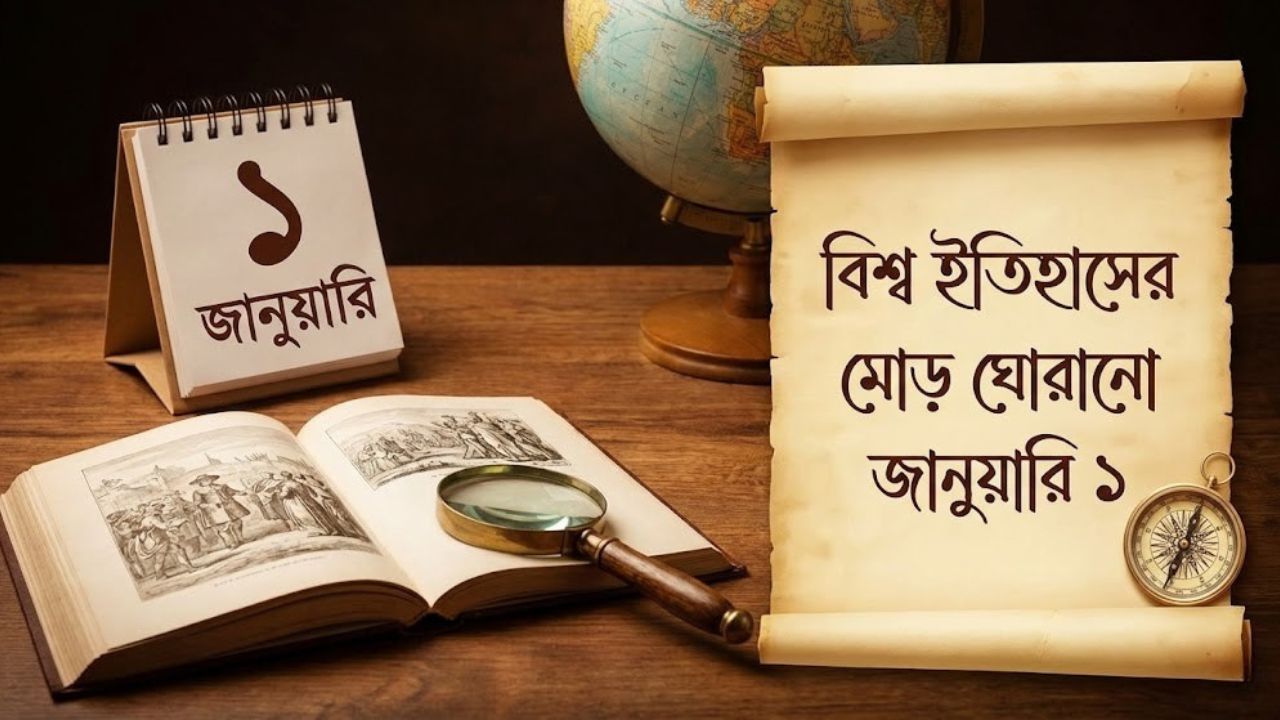 ১
জানুয়ারি
বিশ্ব ইতিহাসের
মোড় ঘোরানো
জানুয়ারি ১